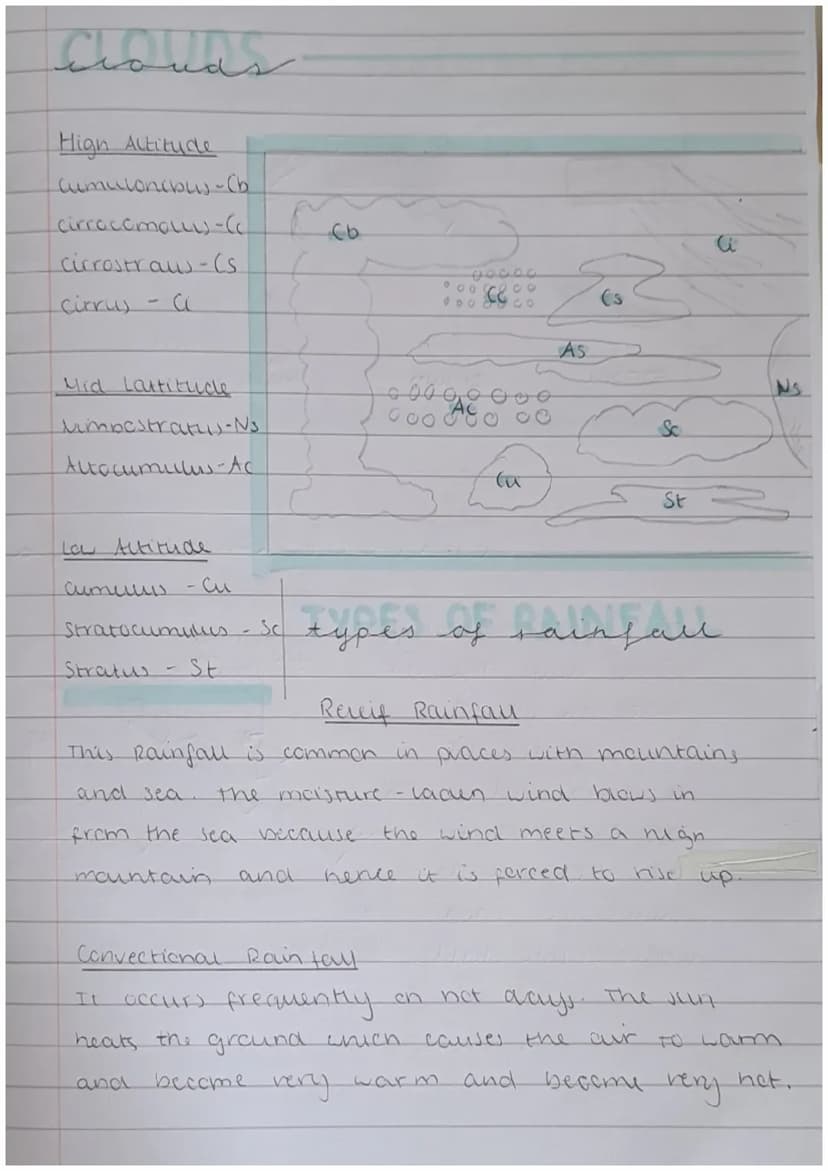 CLOUDS
clouds
High Altitude
Cumulonibus - Cb
cirrocomolus - Cc
cirrostratus - Cs
cirrus - Ci
Cb
Ci
Cc
Cs
As
Mid Lattitude
Nimbostratus - Ns
Altocumulus - Ac
Ns
Ac
Sc
Cu
St
Low Altitude
cumulus - Cu
Stratocumulus - Sc
Stratus - St
TYPES OF RAINFALL
types of rainfall
Releif Rainfall
This Rainfall is common in places with mountains
and sea. The moisture - laden wind blows in
from the sea because the wind meets a high
mountain and hence it is forced to rise up.
Convectional Rainfall
It occurs frequently on hot days. The sun
heats the ground which causes the air to warm
and become very warm and become very hot.